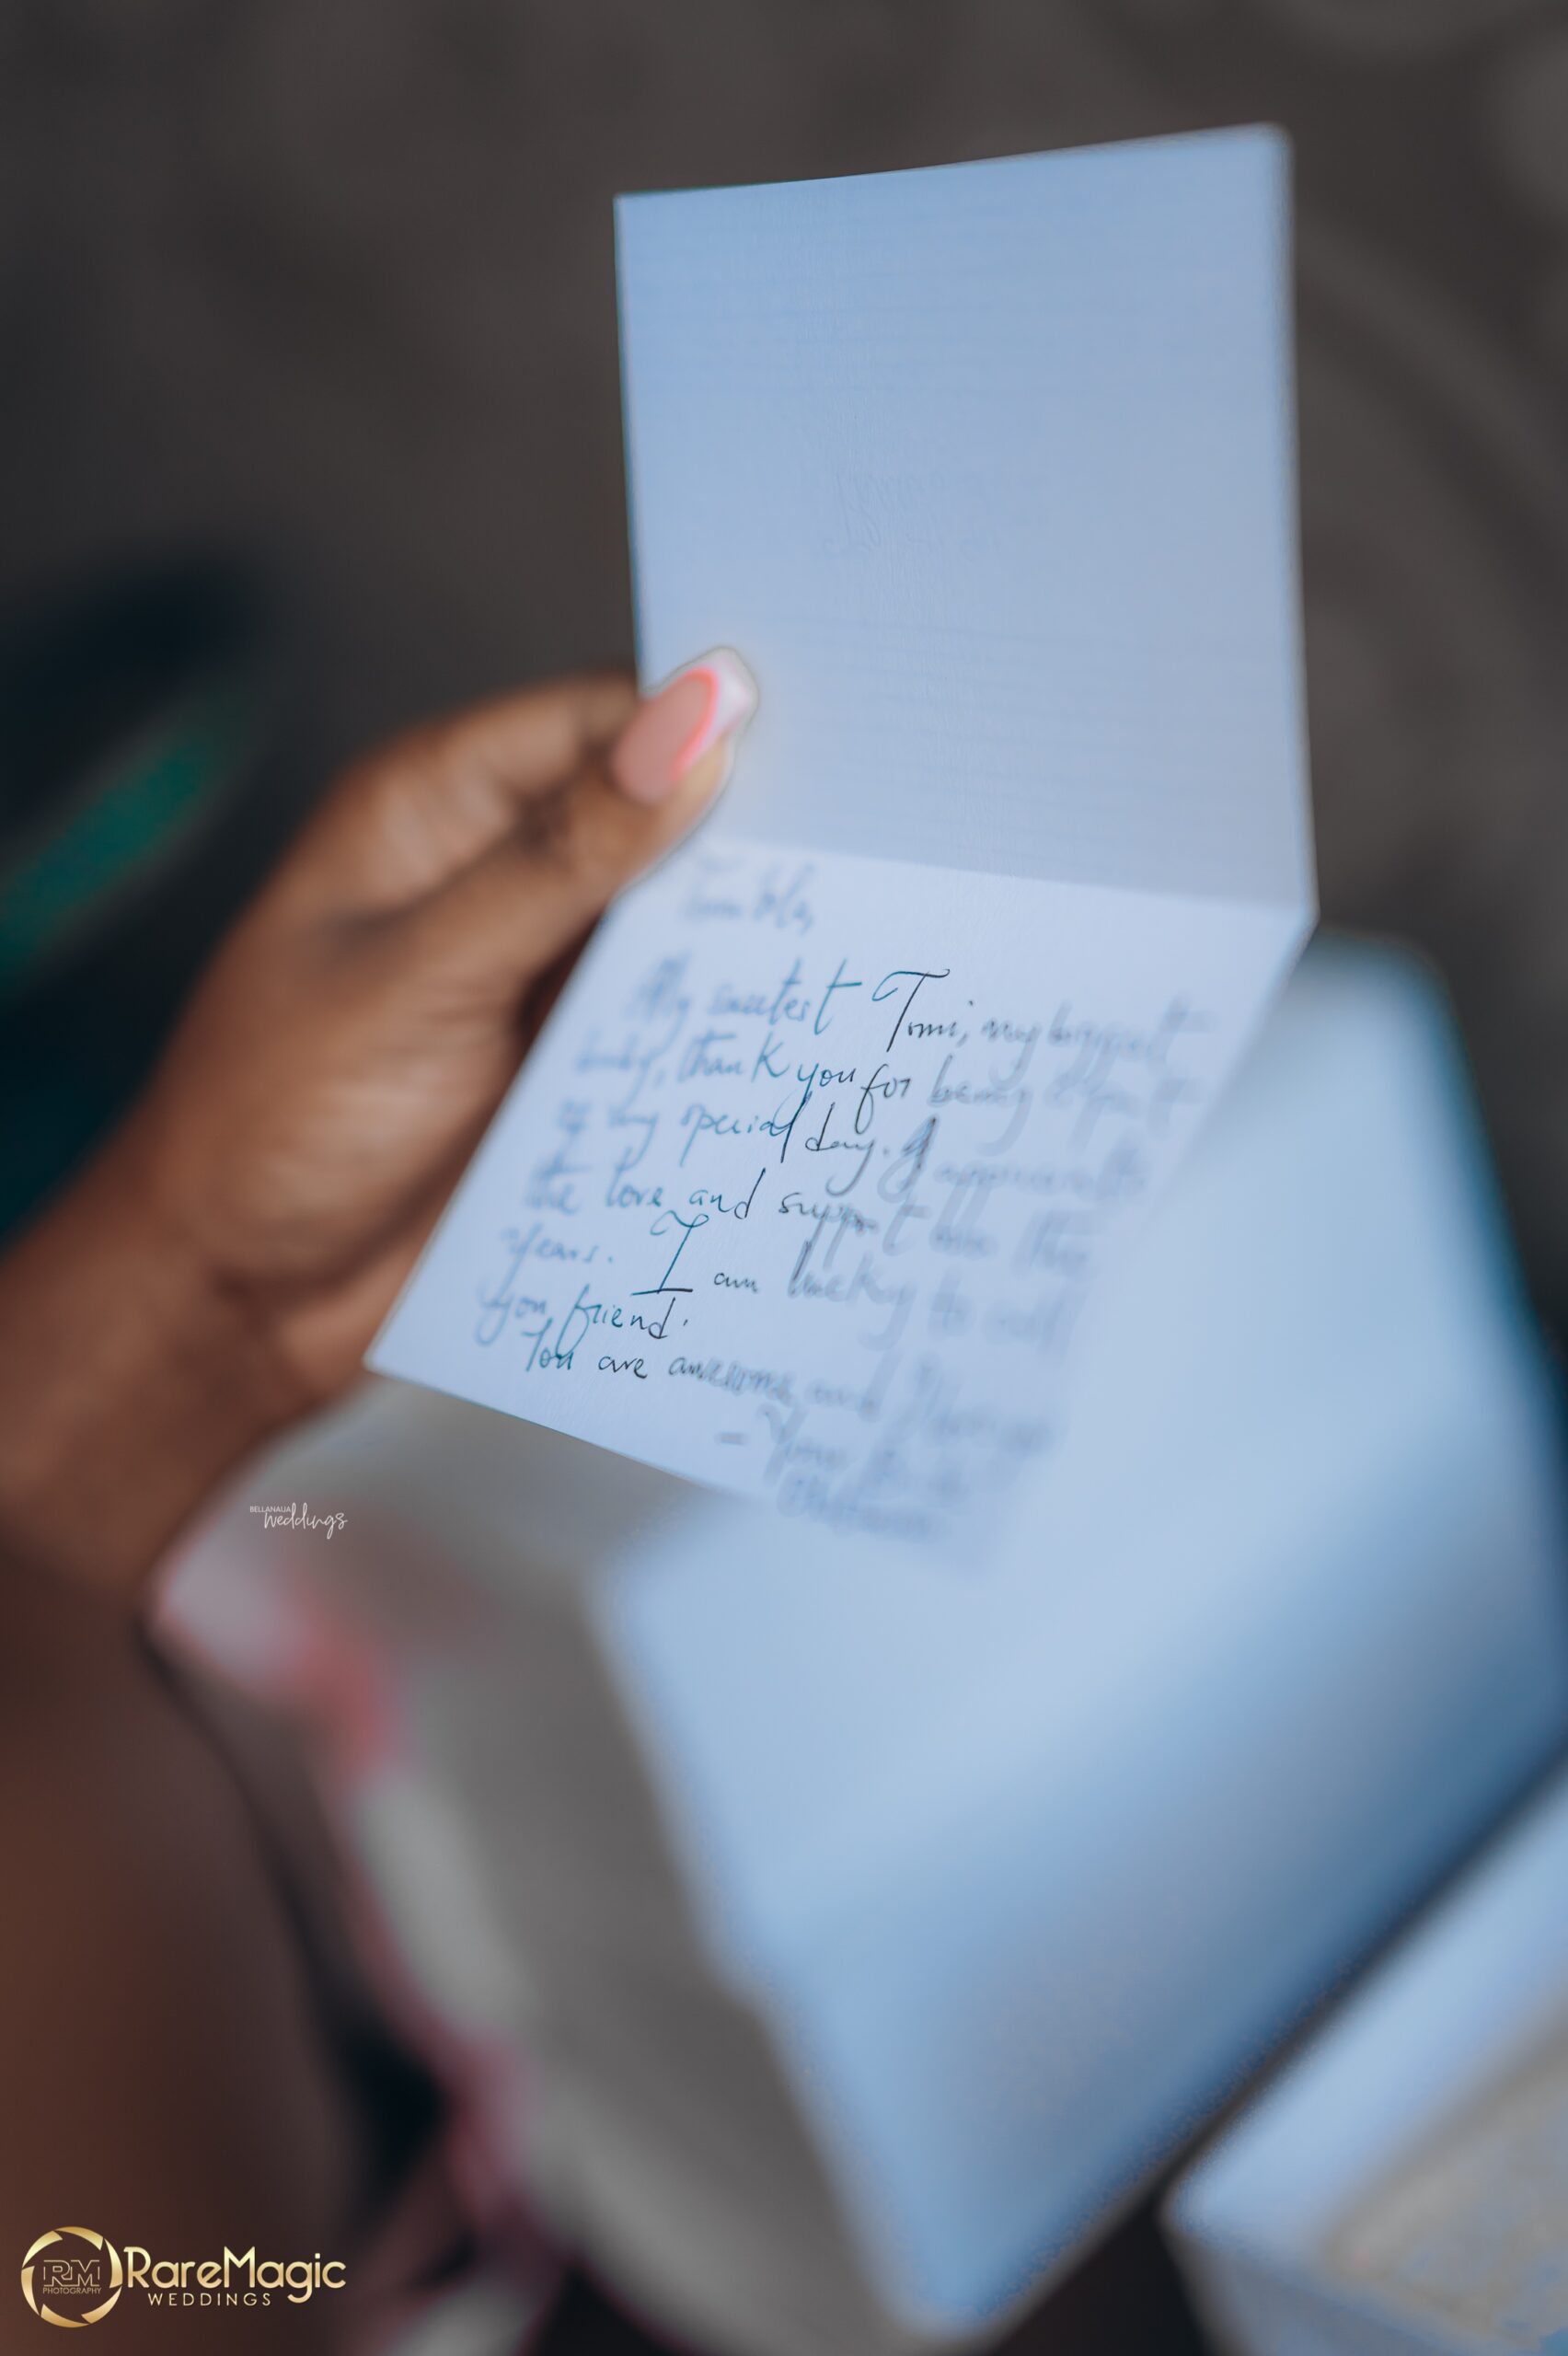 My sweetest Tomi, my biggest
baby, thank you for being a part
of my special day. I appreciate
the love and support all the
years. I am lucky to call
you friend.
You are awesome and
- Your
BELLANAIJA
weddings
RM
PHOTOGRAPHY
RareMagic
WEDDINGS